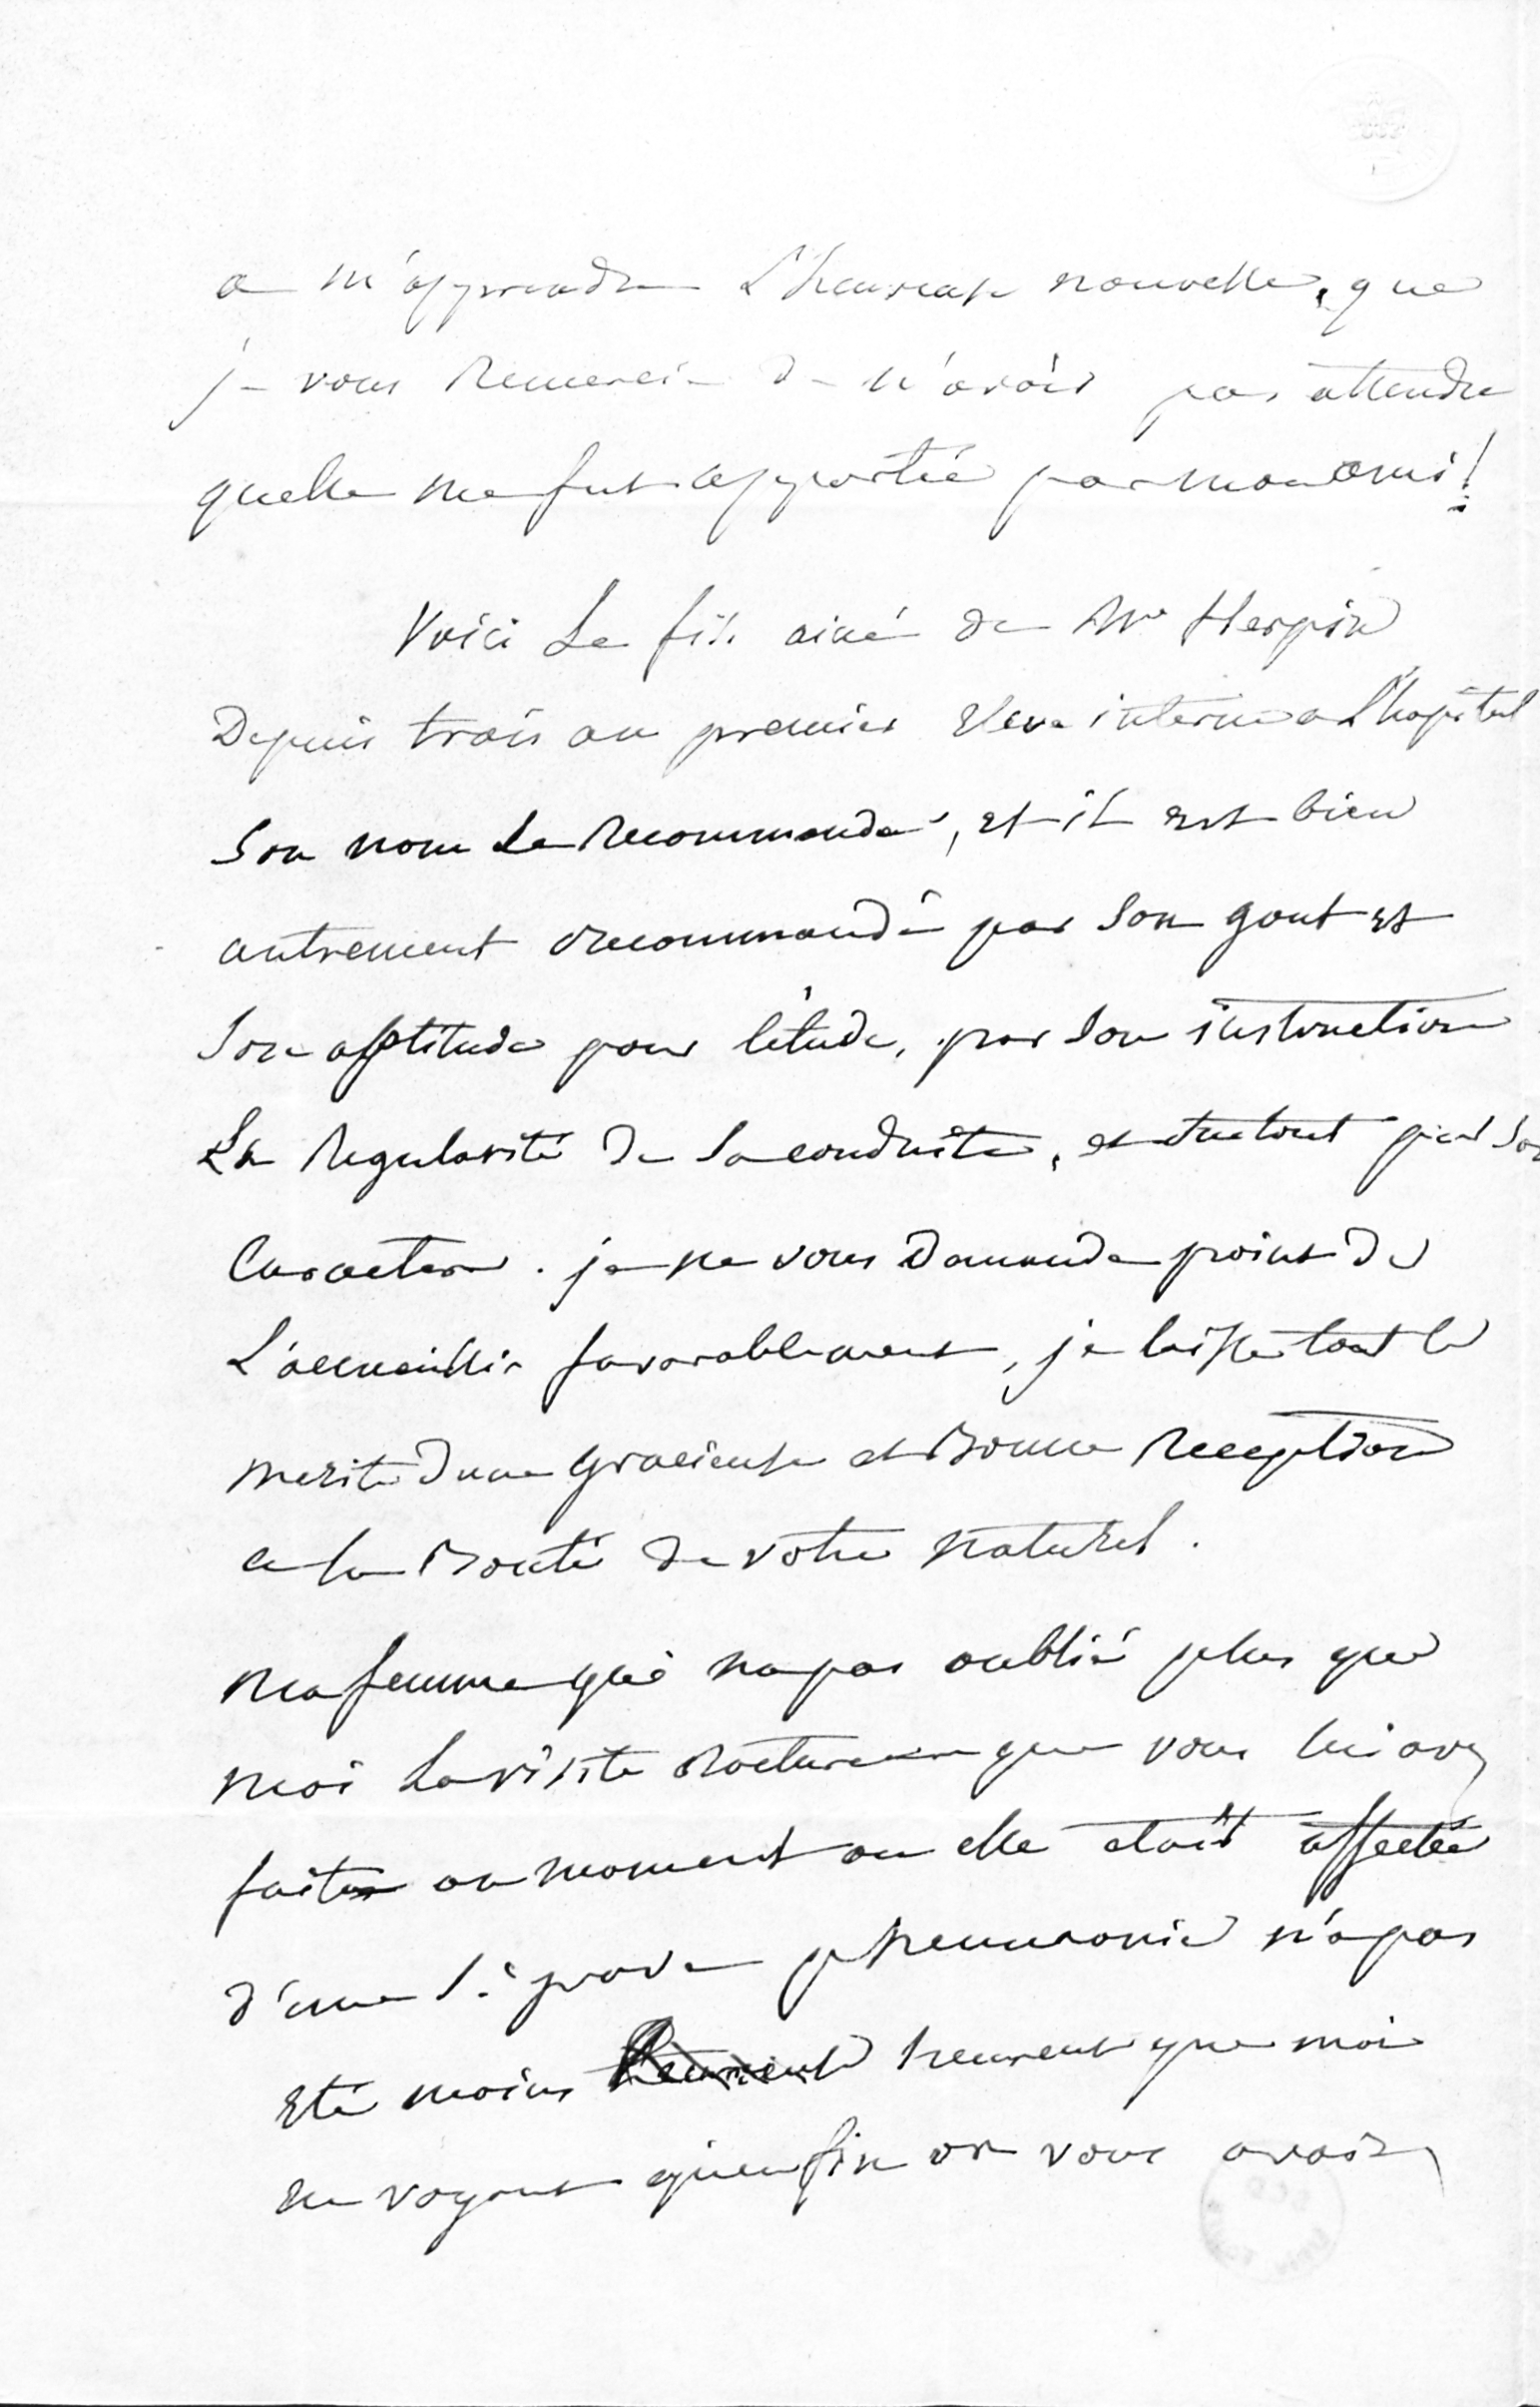 a m'apprendre L'heureuse nouvelle, que
je vous Remercie de n'avoir pas attendre
quelle me fut apportée par mon ami!
Voici Le fils ainé de Mr Herpin
Depuis trois an premier Eleve interne a L'hopital
Son nom Le Recommande, et il est bien
autrement Recommandé par Son gout et
Son aptitude pour l'étude, par Son instruction
La Regularité de Sa conduite, et surtout par Son
Caractere. je ne vous Demande point de
L'accueillir favorablement, je laisse tout le
merite d'une gracieuse et Bonne Reception
a la Bonté de votre naturel.
Ma femme qui na pas oublié plus que
moi La visite nocturne que vous lui avez
faite au moment ou elle etoit affectée
d'une Si grave pneumonie n'a pas
Eté moins heureuse que moi
En voyant qu'enfin on vous avoit